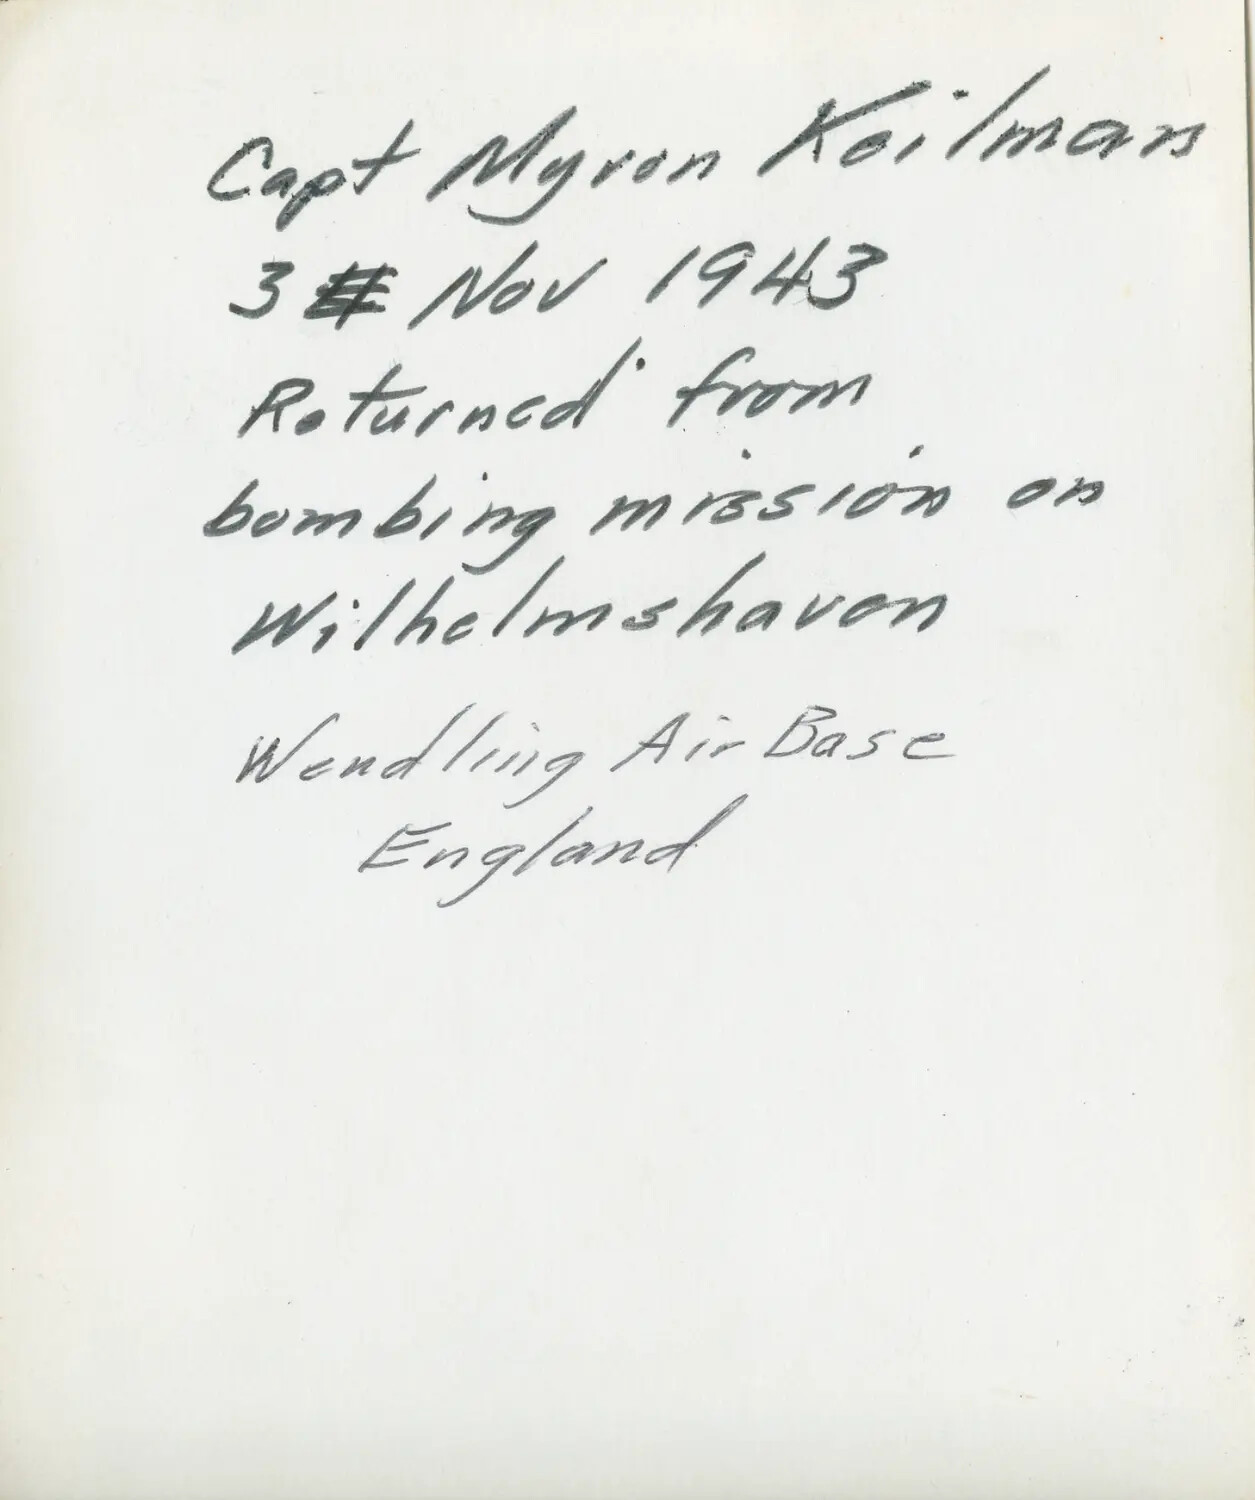 Capt Myron Keilman
3 Nov 1943
Returned from
bombing mission on
Wilhelmshaven
Wendling Air Base
England